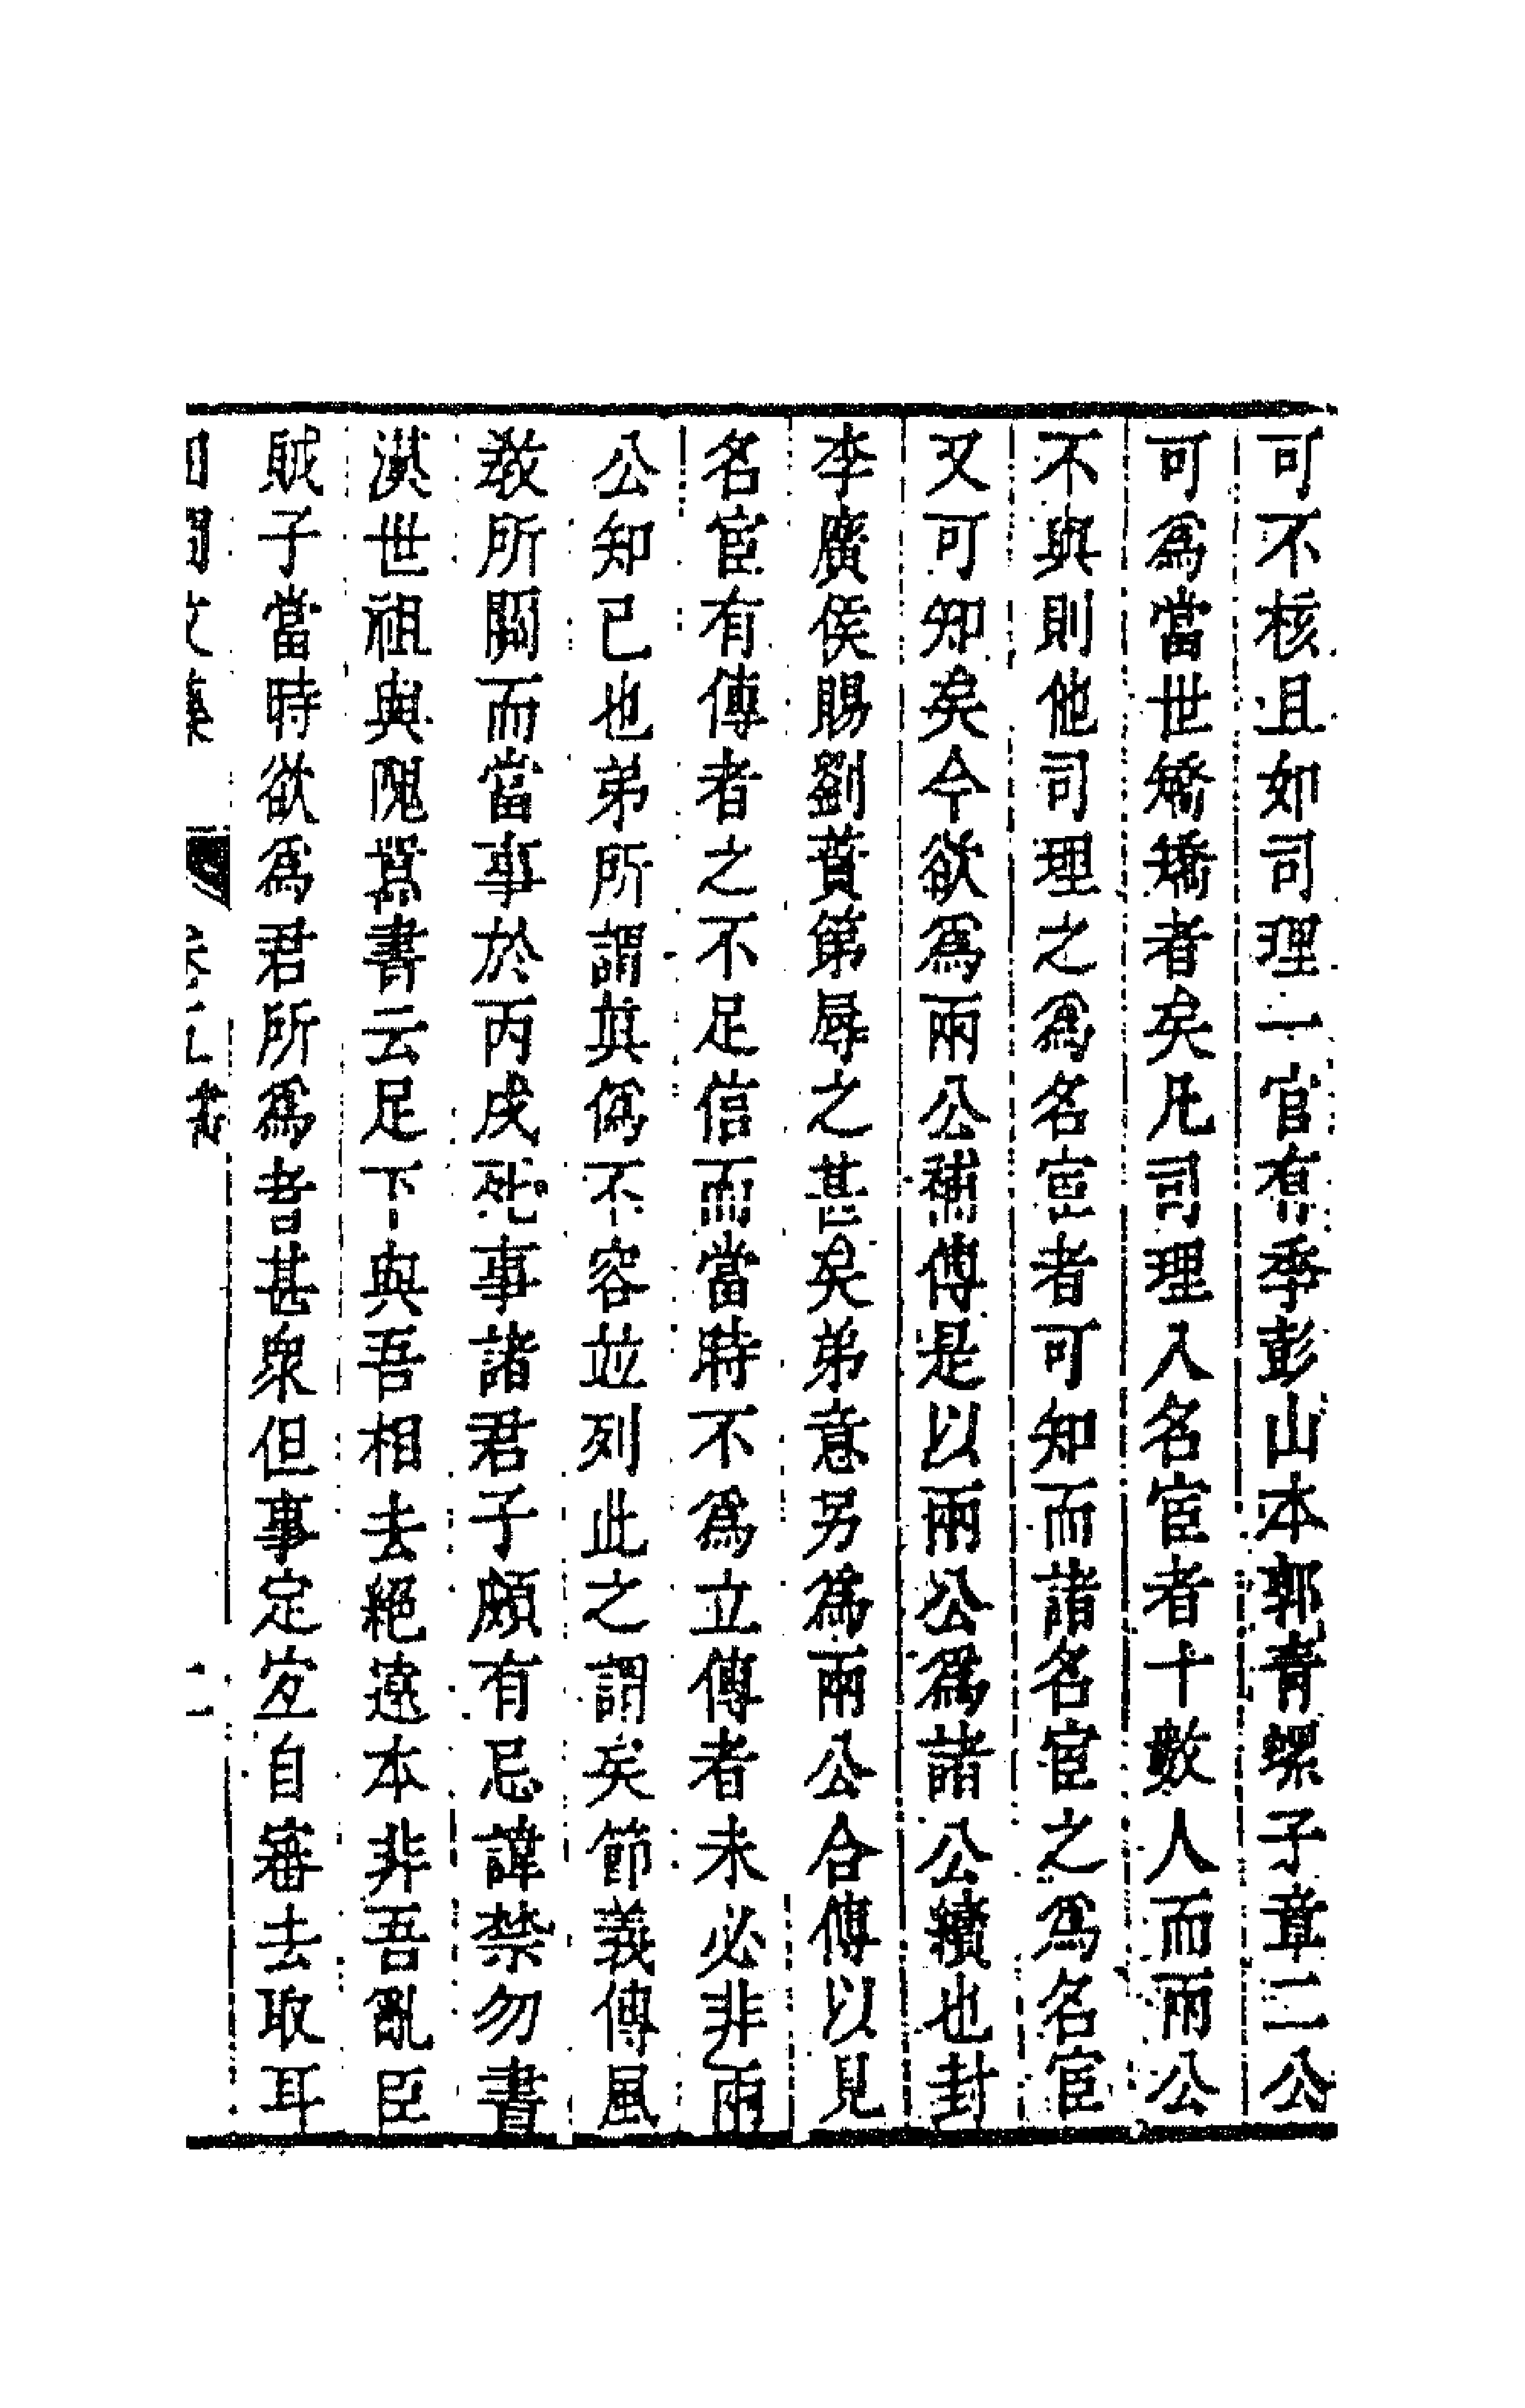 可不核且如司理一官有季彭山本郭青螺子章二公
可爲當世矯矯者矣凡司理入名宦者十數人而兩公
不與則他司理之爲名宦者可知而諸名宦之爲名宦
又可知矣今欲爲兩公補傳是以兩公爲諸公續也封
李廣侯賜劉蕡第辱之甚矣弟意另爲兩公合傳以見
名宦有傳者之不足信而當時不爲立傳者未必非兩
公知已也弟所謂眞僞不容並列此之謂矣節義傳風
敎所關而當事於丙戌死事諸君子頗有忌諱禁勿書
漢世祖與隗囂書云足下與吾相去絕遠本非吾亂臣
賊子當時欲爲君所爲者甚衆但事定宐自審去取耳